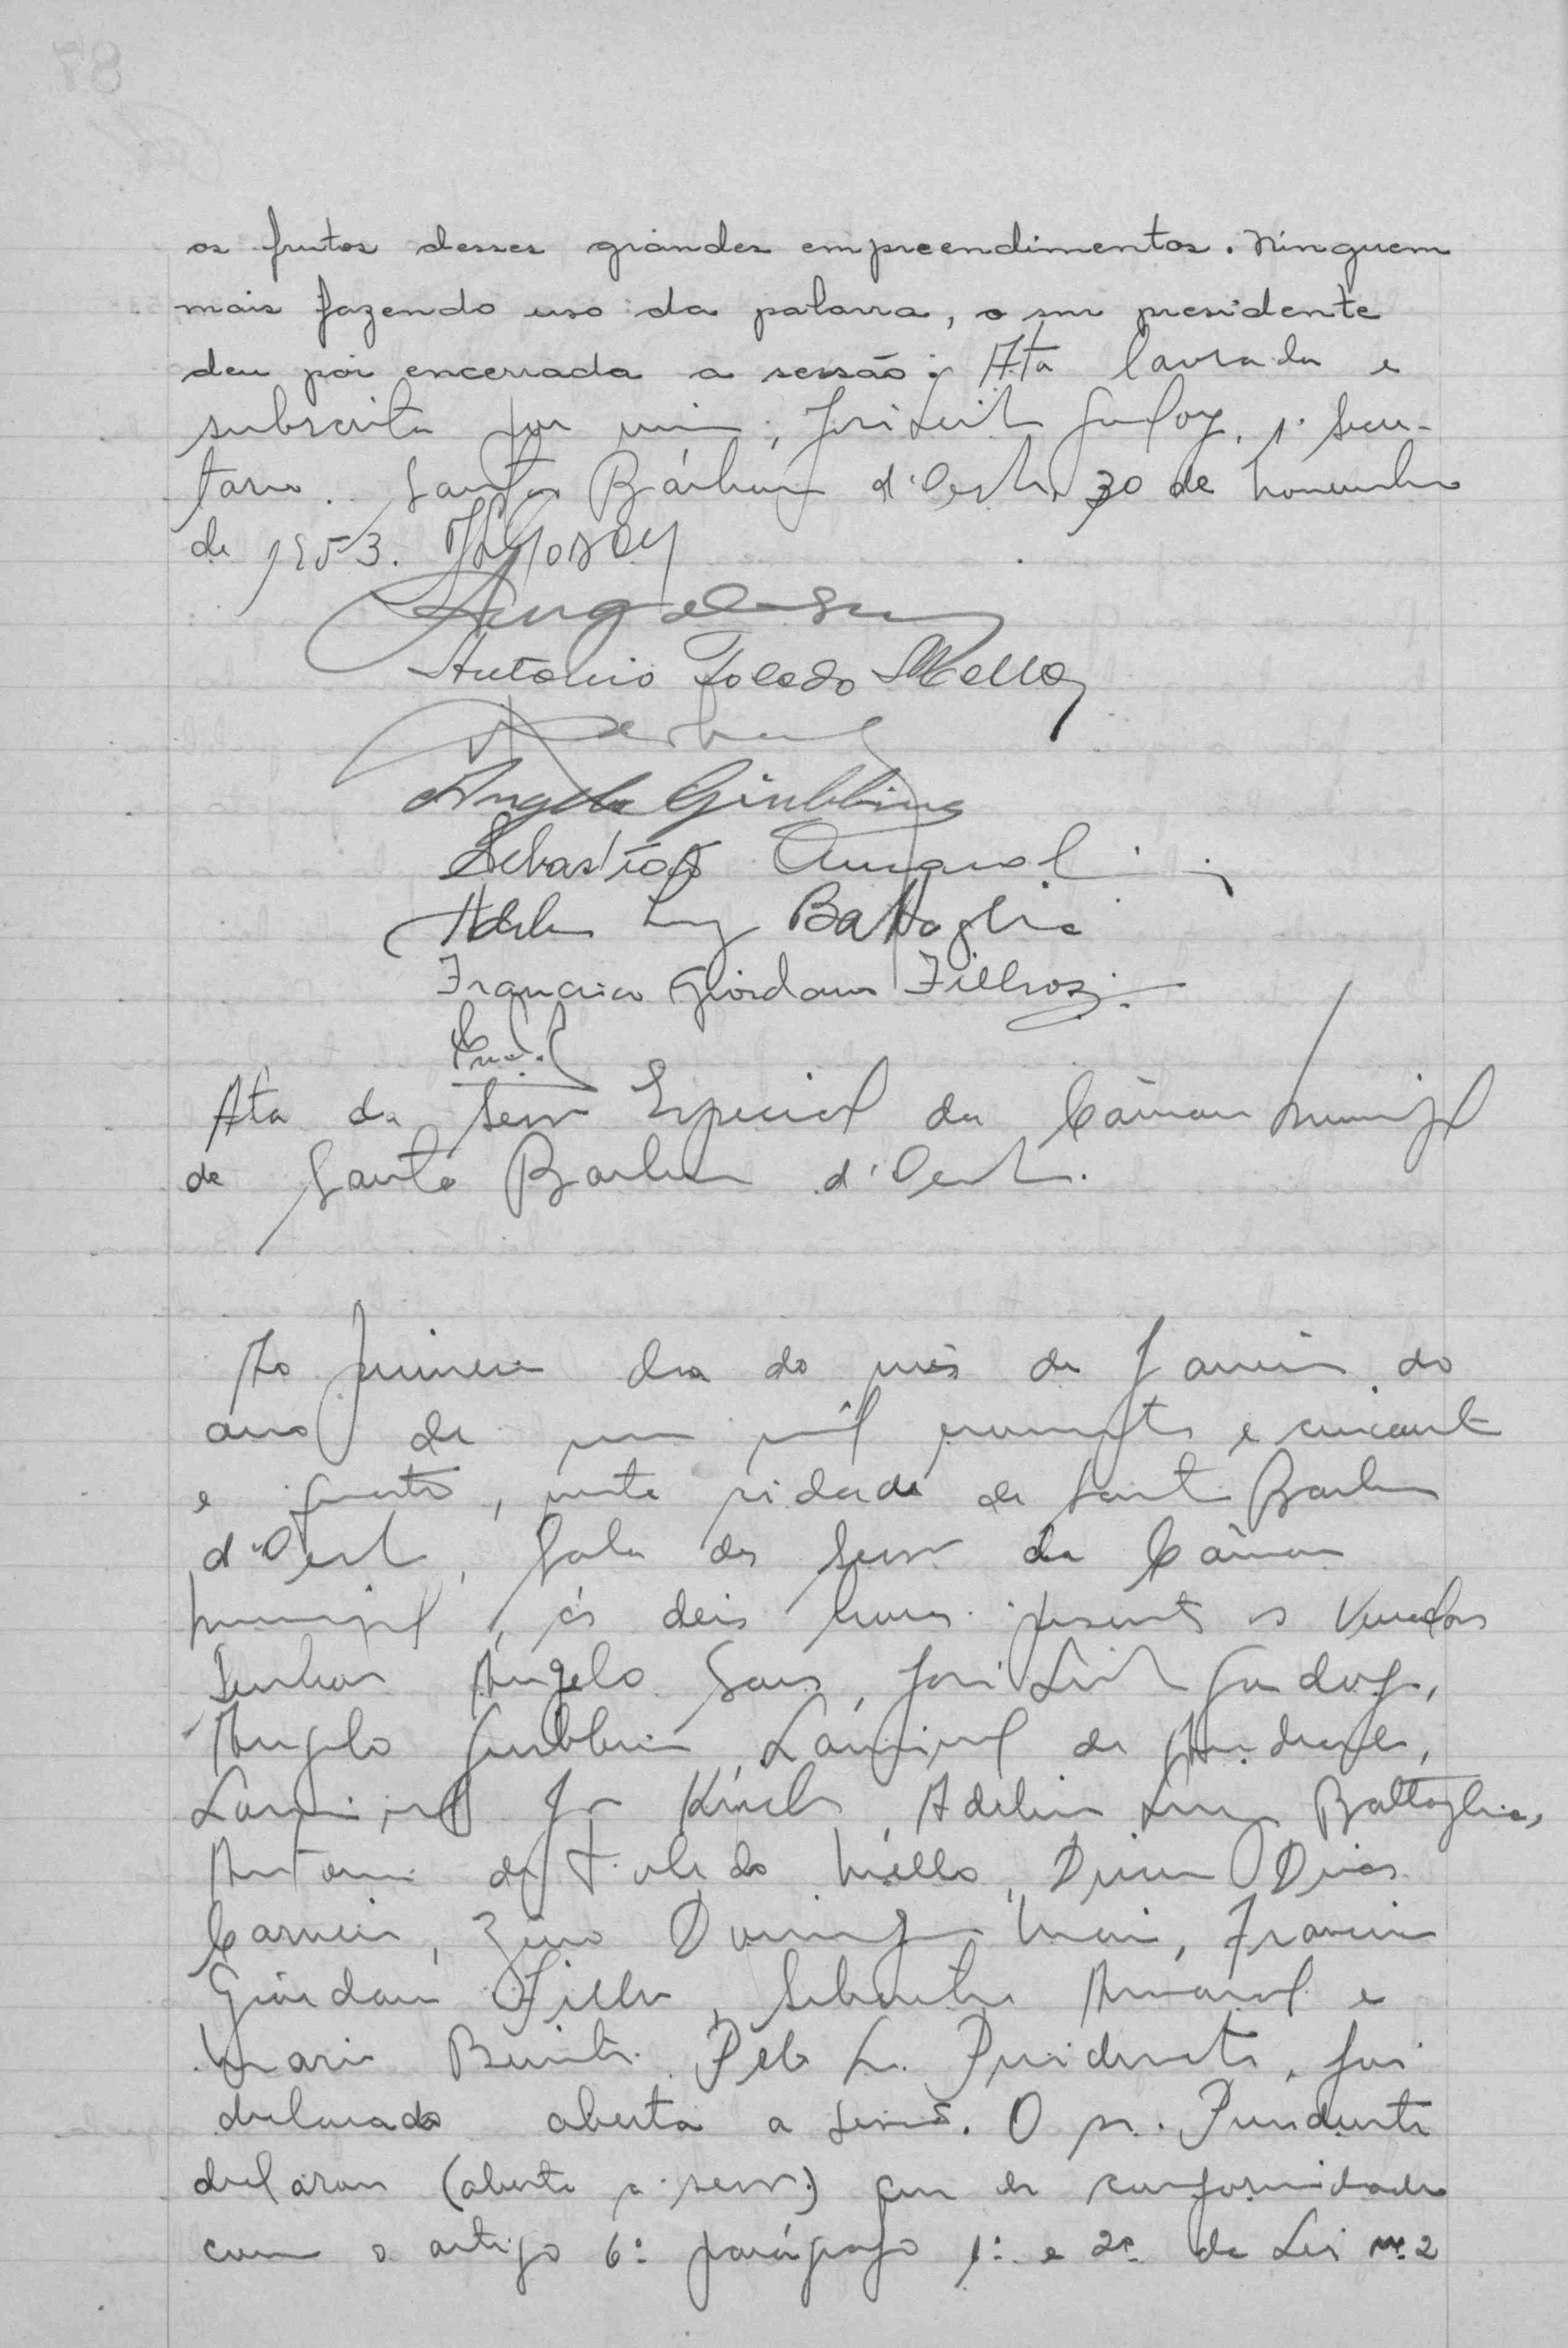 os frutos desses grandes empreendimentos. Ninguem
mais fazendo uso da palavra, o snr presidente
deu por encerrada a sessão. Ata lavrada e
subscrita por mim, José Leite Godoy, 1º Secre-
tario. Santa Bárbara d'Oeste, 30 de novembro
de 1953. JLGodoy
Antonio Toledo Mello
Angelo Giubbina
Sebastião Amaral
Adelino Luz Battaglia
Francisco Giordano Filho
Ata da Sessão Especial da Câmara Municipal
de Santa Barbara d'Oeste.
Ao primeiro dia do mês de Janeiro do
ano de um mil novecentos e cincoenta
e quatro, nesta cidade de Santa Barbara
d'Oeste, Sala das Sessões da Câmara
Municipal, ás deis horas presentes os Vereadores
Senhores Angelo Sans, José Leite Godoy,
Angelo Giubbina, Laurival de Andrade,
Adelino Luz Battaglia,
Antonio de Toledo Mello, Dirceu Dias
Carneiro, Domingos Francisco
Giordano Filho, Sebastião Amaral e
Mario Pelo Sr. Presidente, foi
declarada aberta a sessão. O sr. Presidente
declarou (aberta a sessão) que de conformidade
com o artigo 6º parágrafo 1º e 2º da Lei nº 2